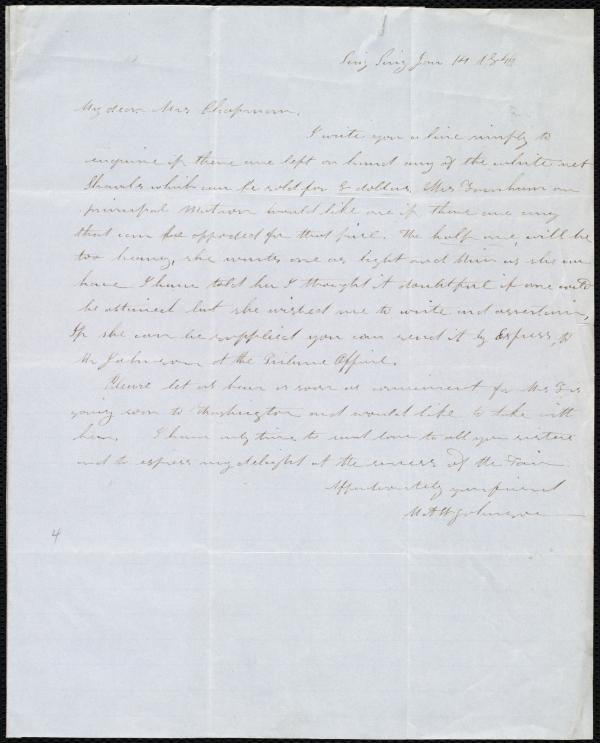 Sing Sing Jan 14 184
My dear Mrs Chapman,
I write you a line simply to
enquire if there are left on hand any of the white net
Shawls which can be sold for 8 dollars. Mrs Farnham our
principal Matron would like one if there are any
that can be afforded for that price. The half one, will be
too heavy, she wants one as light and thin as she can
have I have told her I thought it doubtful if one could
be obtained but she wished me to write and ascertain,
If she can be supplied you can send it by Express, to
Mr Johnson at the Tribune Office.
Please let us hear as soon as convenient for Mrs F is
going soon to Washington and would like to take with
her. I have only time to send love to all your sisters
and to express my delight at the success of the Fair.
Affectionately your friend
M A W Johnson
4